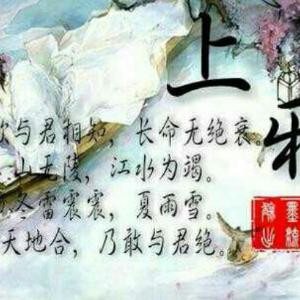 上
与君相知，长命无绝衰。
山无陵，江水为竭。
冬雷震震，夏雨雪。
天地合，乃敢与君绝。